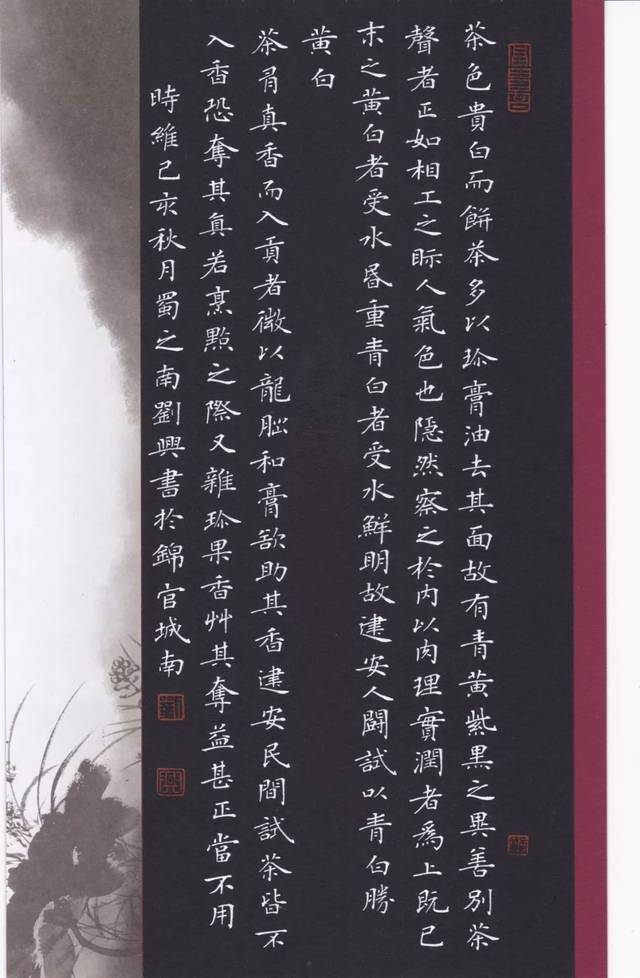 茶色貴白而餅茶多以珎膏油去其面故有青黃紫黑之異善別茶
聲者正如相工之眎人氣色也隱然察之於內以肉理實潤者爲上既已
末之黃白者受水昬重青白者受水鮮明故建安人鬭試以青白勝
黃白
茶有真香而入貢者微以龍腦和膏欲助其香建安民間試茶皆不
入香恐奪其真若烹點之際又雜珎果香艸其奪益甚正當不用
時維己亥秋月蜀之南劉興書於錦官城南
劉
興